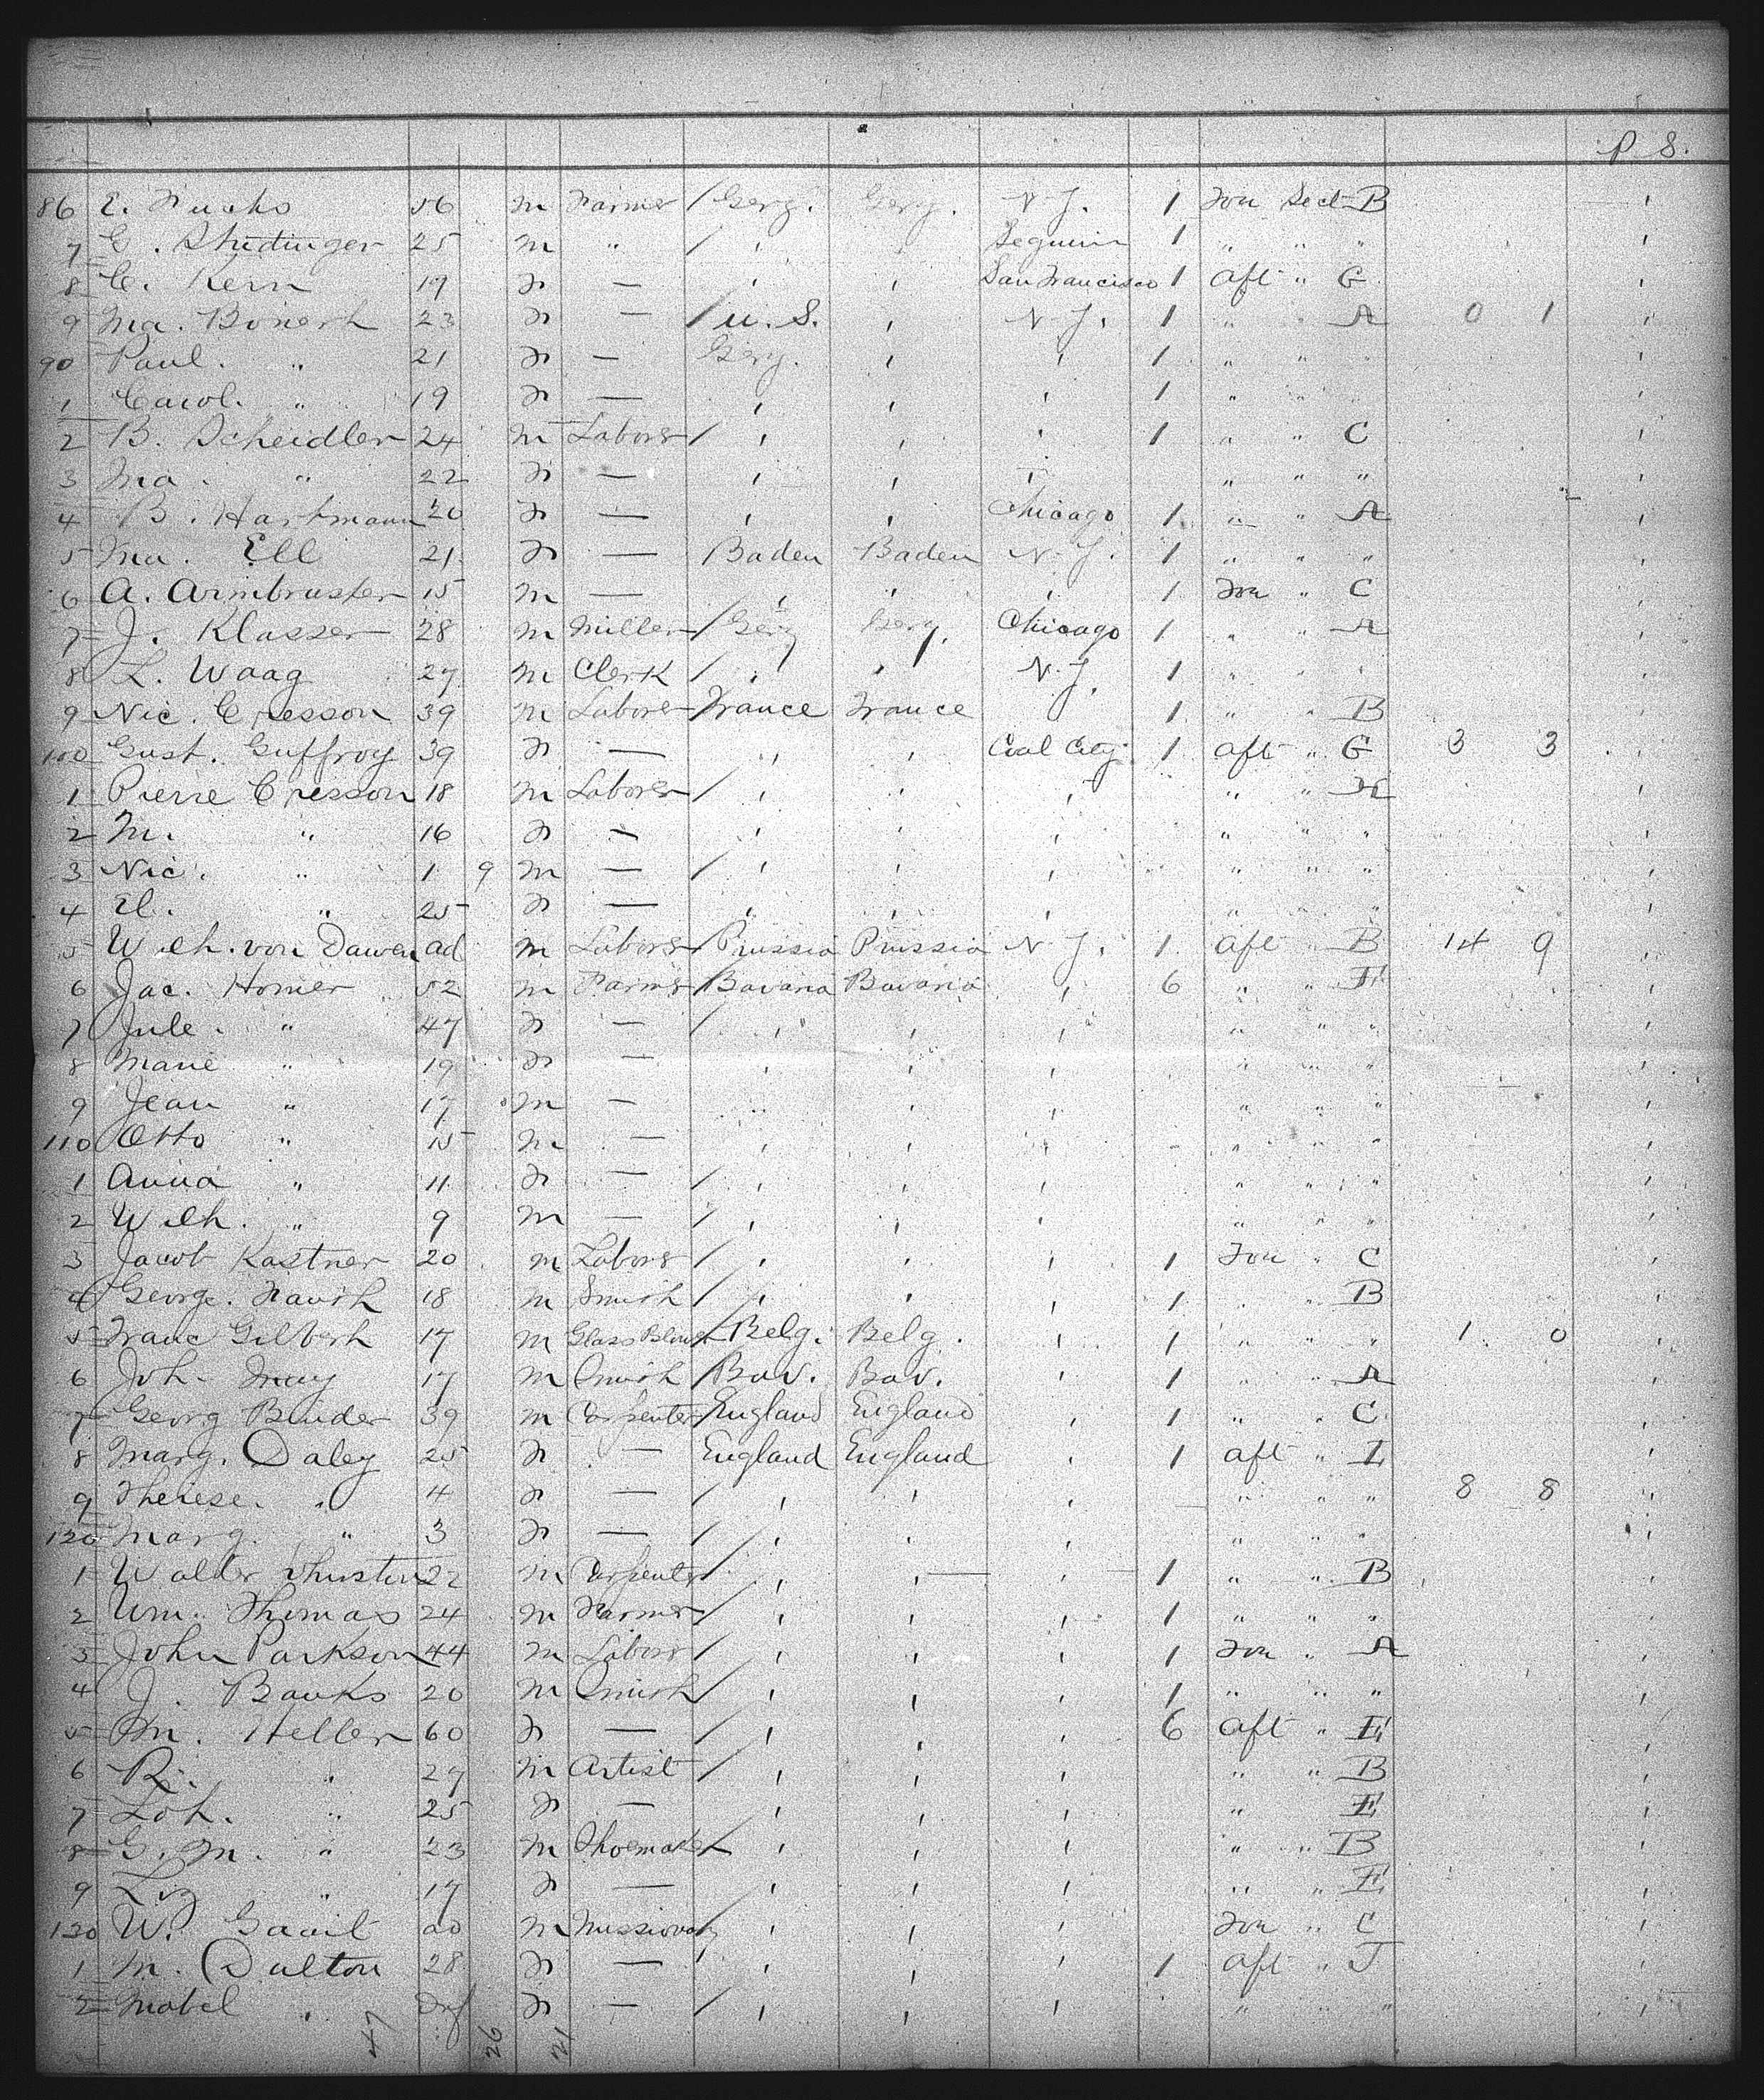 P S.
86 E. Fuchs 56 m Farmer / Gery. Gery. N. Y. 1 For Sect B '
7 G. 25 m " / ' Seguin 1 " " " '
8 C. Kern 19 f — ' ' San Francisco 1 aft " G '
9 Ma. 23 f — / U. S. ' N. Y. 1 " " A 0 1 '
90 Paul. " 21 f — Gery. ' ' 1 " " '
1 Carol. " 19 f — ' ' ' 1 " " '
2 B. Scheidler 24 m Labors / ' ' ' 1 " " C '
3 Ma. " 22 f — ' ' ' " " " '
4 B. Hartmann 20 f — ' ' Chicago 1 " " A '
5 Ma. Ell 21 f — Baden Baden N. Y. 1 " " " '
6 A. Armbruster 15 m — ' " ' 1 For " C '
7 J. Klasser 28 m Miller / Gery Gery. Chicago 1 " " A '
8 L. Waag 27 m Clerk / ' ' N. Y. 1 " '
9 Nic. Cresson 39 m Labors France France 1 " " B '
100 Gust. Guffroy 39 f — " ' Coal City 1 aft " G 3 3 '
1 Pierre Cresson 18 m Labors / ' ' ' " " H '
2 M. " 16 f — ' ' ' " " " '
3 Nic. " 1 9 m — / ' ' ' " " " '
4 El. " 25 f — ' ' ' " " " '
5 Wilh. von Dawen ad m Labors / Prussia Prussia N. Y. 1 aft " B 14 9 '
6 Jac. Homer 52 m Farms / Bavaria Bavaria ' 6 " " E '
7 Jule. " 47 f — / ' ' ' " " " '
8 Marie " 19 f — ' ' ' " " " '
9 Jean " 17 m — " ' ' " " " '
110 Otto " 15 m — ' ' ' " " " '
1 Anna " 11 f — / ' ' ' " " " '
2 Wilh. " 9 m — / ' ' ' " " " '
3 Jacob Kastner 20 m Labors / ' ' ' 1 For " C '
4 George. 18 m Smith / ' ' ' 1 " B '
5 Franc Gilbert 17 m Glass Blower / Belg. Belg. ' 1 " " " 1 0 '
6 Joh. May 17 m Smith / Bav. Bav. ' 1 " " A '
7 Georg Binder 39 m Carpenter / England England ' 1 " " C '
8 Marg. Daley 25 f — England England ' 1 aft " I '
9 Therese. " 4 f — / ' ' ' " " " 8 8 '
120 Marg. " 3 f — / ' ' ' " " " '
1 Walter 22 m Carpenter / ' ' ' 1 " " B '
2 Wm. Thomas 24 m Farmer / ' ' ' 1 " " " '
3 John Parkson 44 m Labors / ' ' ' 1 For " A '
4 J. Banks 20 m Smith / ' ' ' 1 " " " '
5 M. Heller 60 f — / ' ' ' 6 aft " E '
6 R. " 27 m Artist / ' ' ' " " B '
7 Loh. " 25 f — ' ' ' " E '
8 G. M. " 23 m Shoemaker / ' ' ' " " B '
9 " 17 f — ' ' ' " " E '
130 W. ad m Missionary ' ' ' For " C '
1 M. Dalton 28 f — ' ' ' 1 aft " J '
2 Mabel " Inf f — / ' ' ' " " " '
47 26 21